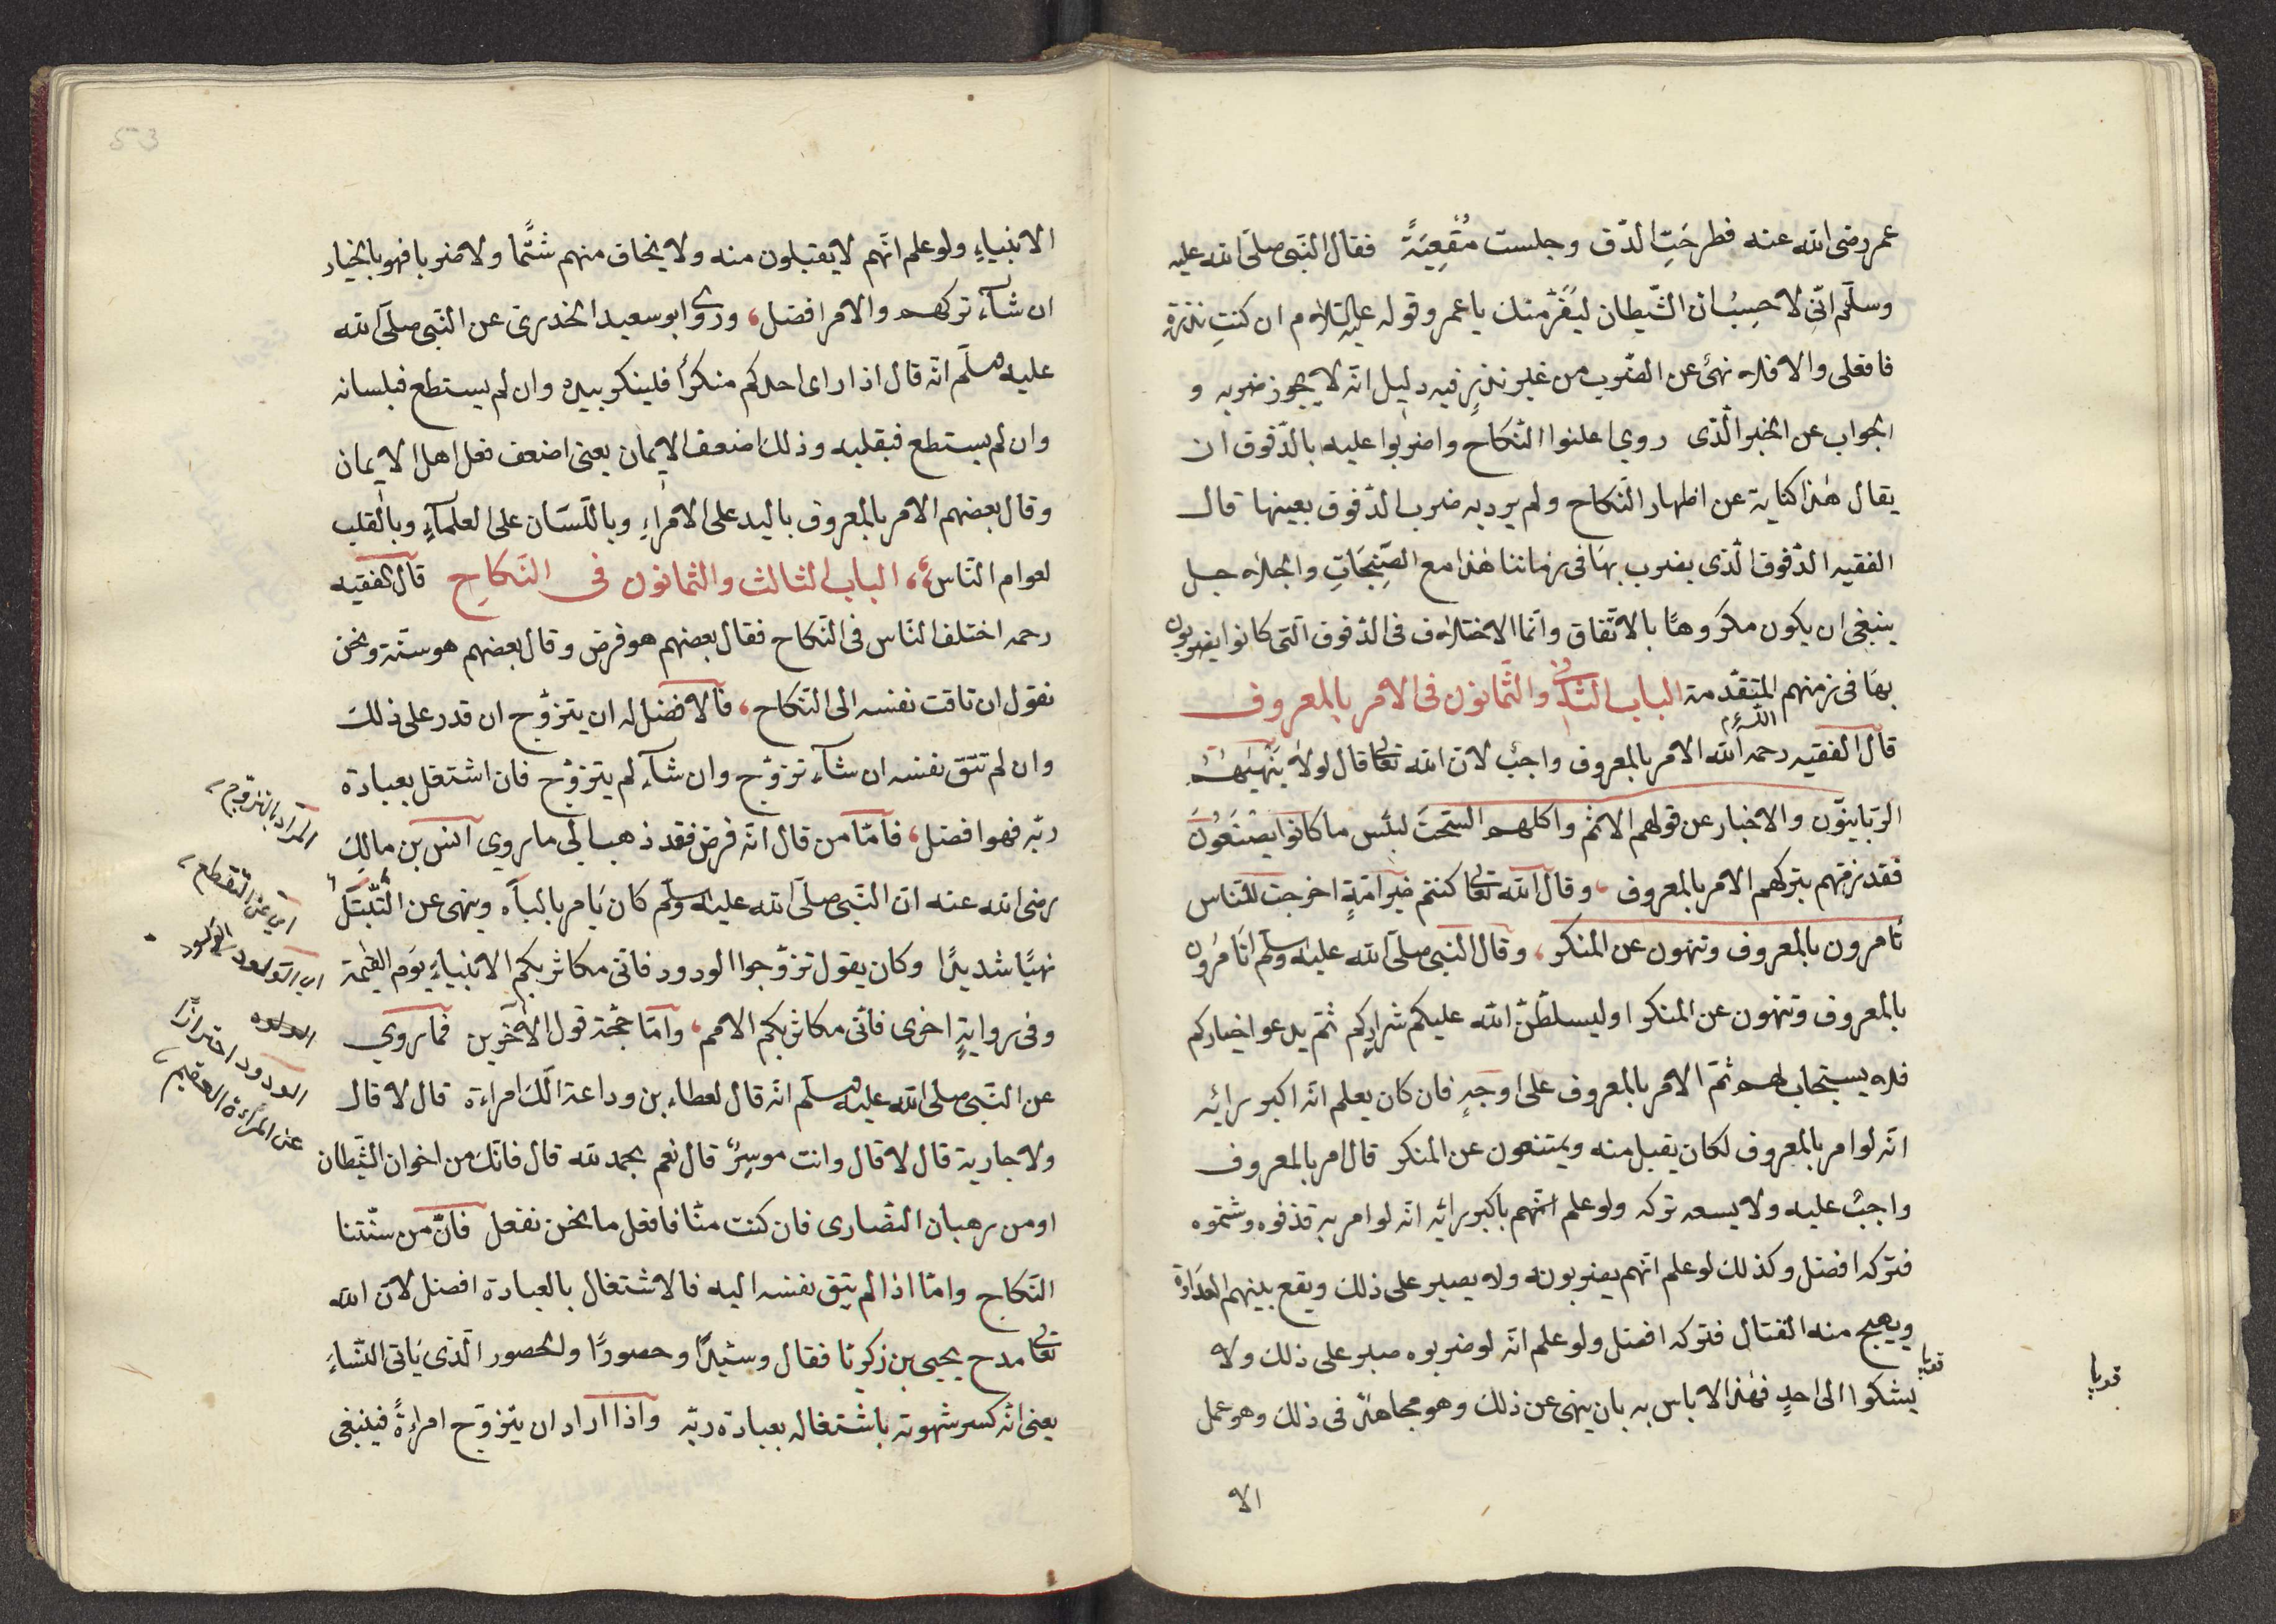 عمر رضى الله عنه فطرحَتِ الدّف وجلست مُقْعِيَةً فقال النّبى صلّى الله عليه
وسلّم انّى لاحسِبُ ان الشّيطان ليَفِرّ منك يا عمر وقوله عليه السّلام ان كنتِ نذرتِ
فافعلى والا فلا نهىٌ عن الضّرب من غير نذرٍ فيه دليل انّه لا يجوز ضربه و
الجواب عن الخبر الّذى روي اعلنوا النّكاح واضربوا عليه بالدّفوف ان
يقال هٰذا كناية عن اظهار النّكاح ولم يرد به ضرب الدّفوف بعينها قال
الفقيه الدّفوف الّذى يضرب بهَا فى زماننا هٰذا مع الصَّنِجَاتِ والجلاجل
ينبغى ان يكون مكروهًا بالاتّفاق وانّما الاختلاف فى الدّفوف الّتى كانوا يضربون
بهَا فى زمنهم المتقدّمة الباب الثّانى والثّمانون فى الامر بالمعروف
قال الفقيه رحمه الله الامر بالمعروف واجبٌ لانّ الله تعالى قال لولا يَنْهٰيهُم
الرّبانيّون والاحبار عن قولهم الاثم واكلهم السّحتَ لبئس ما كانوا يصْنَعُونَ
فقد ذمّهم بتركهم الامر بالمعروف ، وقال الله تعالى كنتم خير امّةٍ اخرجت للنّاس
تامرون بالمعروف وتنهون عن المنكر ، وقال النّبى صلّى الله عليه وسلّم لتَامرون
بالمعروف وتنهون عن المنكر او ليسلطّنّ الله عليكم شراركم ثمّ يدعو اخياركم
فلا يستجاب لهم ثمّ الامر بالمعروف على اوجهٍ فان كان يعلم انّه اكبر رائه
انّه لو امر بالمعروف لكان يقبل منه ويمتنعون عن المنكر قال امر بالمعروف
واجبٌ عليه ولا يسعه تركه ولو علم انّهم باكبر رائه انّه لو امر به قذفوه وشتموه
فتركه افضل وكذلك لو علم انّهم يضربونه ولا يصبر على ذلك ويقع بينهم العداوة
ويهيج منه القتال فتركه افضل ولو علم انّه لو ضربوه صبر على ذلك ولا
يشكوا الى احدٍ فهٰذا لا باس به بان ينهى عن ذلك وهو مجاهدٌ فى ذلك وهو عمل
الا
الانبياءِ ولو علم انّهم لا يقبلون منه ولا يخاف منهم شتْمًا ولا ضربا فهو بالخيار
ان شآء تركهم والامر افضل ، وروى ابو سعيد الخدرىّ عن النّبى صلّى الله
عليه وسلّم انّه قال اذا راى احدكم منكرًا فلينكر بيده وان لم يستطع فبلسانه
وان لم يستطع فبقلبه وذلك اضعف الايمان يعنى اضعف فعل اهل الايمان
وقال بعضهم الامر بالمعروف باليد على الامراءِ وباللّسَان على العلمآءِ وبالقلب
لعوام النّاس ، الباب الثالث والثمانون فى النّكاحِ قال الفقيه
رحمه اختلف النّاس فى النّكاح فقال بعضهم هو فرض وقال بعضهم هو سنّة ونحن
نقول ان تاقت نفسه الى النّكاح ، فالافضل له ان يتزوّج ان قدر على ذلك
وان لم تتق نفسه ان شآء تزوّج وان شآء لم يتزوّج فان اشتغل بعبادة
ربّه فهو افضل ، فامّا من قال انّه فرض فقد ذهب الى ما روي انس بن مالكِ
رضى الله عنه انّ النّبى صلّى الله عليه وسلّم كان يَامر بالبآه وينهى عن التّبتّل
نهيًا شديدًا وكان يقول تزوّجوا الودود فانّى مكاثر بكم الانبياءَ يوم القيٰمة
وفى روايةٍ اخرى فانّى مكاثر بكم الامم ، وامّا حجّة قول الآخرين فما روي
عن النّبى صلّى الله عليه وسلّم انّه قال لعطاء بن وداعة الَكَ امراءة قال لا قال
ولا جارية قال لا قال وانت موسِرٌ قال نعم بحمد لله قال فانّك من اخوان الشّيطان
او من رهبان النّصٰارى فان كنت منّا فافعل ما نحن نفعل فانّ من سنّتنا
النّكاح وامّا اذا لم يتق نفسه اليه فالاشتغال بالعبادة افضل لانّ الله
تعالى مدح يحيى بن زكريّا فقال وسيّدًا وحصورًا والحصور الّذى يَاتى النّساءَ
يعنى انّه كسر شهوته باشتغاله بعبادة ربّه واذا اراد ان يتزوّج امراءةً فينبغى
المراد بالتزوج
اى عن التقطع
اى التولود
الودود احترازًا
عن المراءة العقيم
53